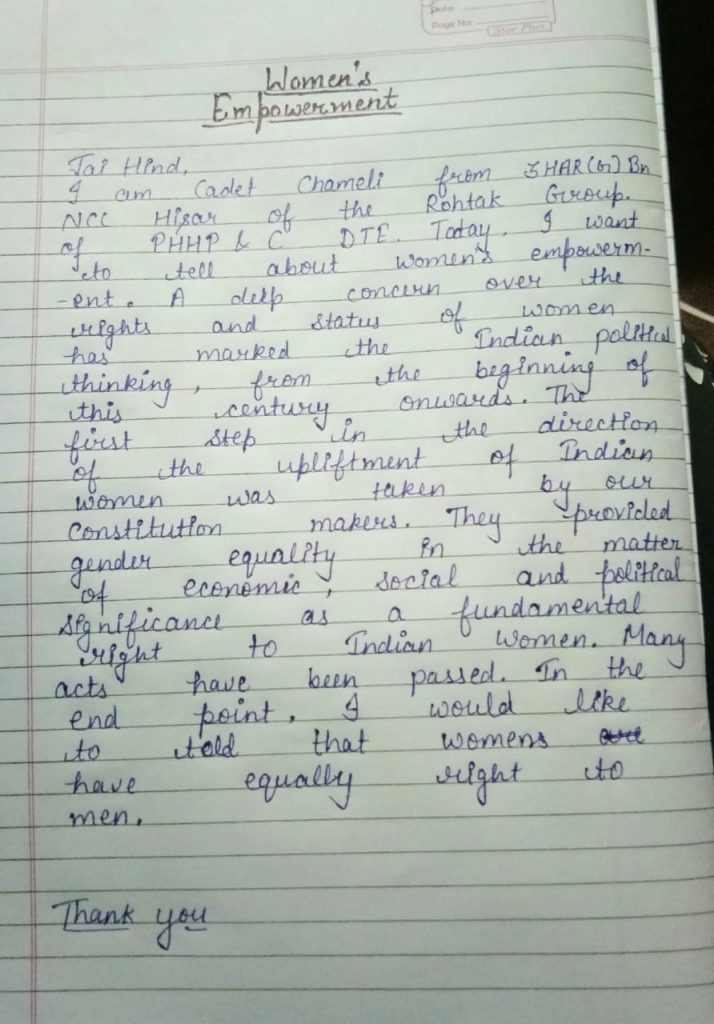 Date
Page No.
Star Plus
Women's
Empowerment
Jai Hind,
I am Cadet Chameli from 3HAR(G) Bn
NCC Hisar of the Rohtak Group.
of PHHP & C DTE. Today. I want
to tell about women's empowerm-
-ent. A deep concern over the
rights and status of women
has marked the Indian political
thinking, from the beginning of
this century onwards. The
first step in the direction
of the upliftment of Indian
women was taken by our
constitution makers. They provided
gender equality in the matter
of economic, social and political
significance as a fundamental
right to Indian women. Many
acts have been passed. In the
end point, I would like
to told that womens
have equally right to
men.
Thank you